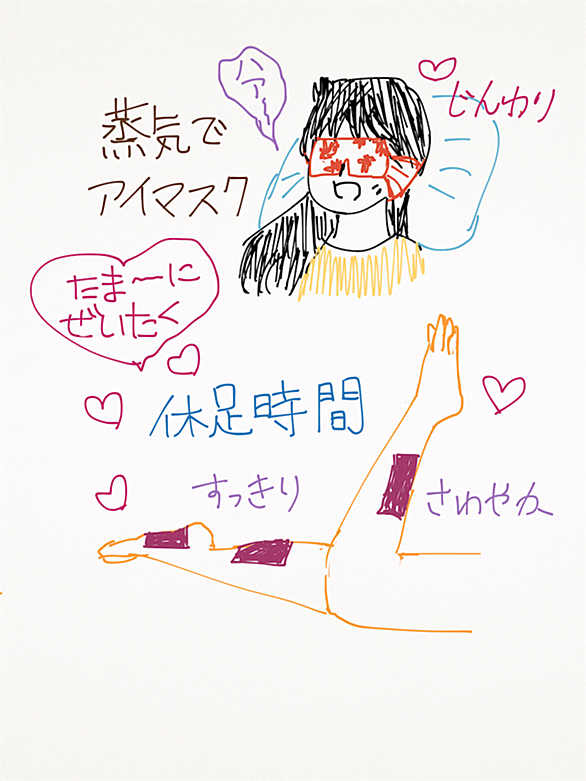 ハアー
じんわり
蒸気で
アイマスク
たま〜に
ぜいたく
休足時間
すっきり
さわやか